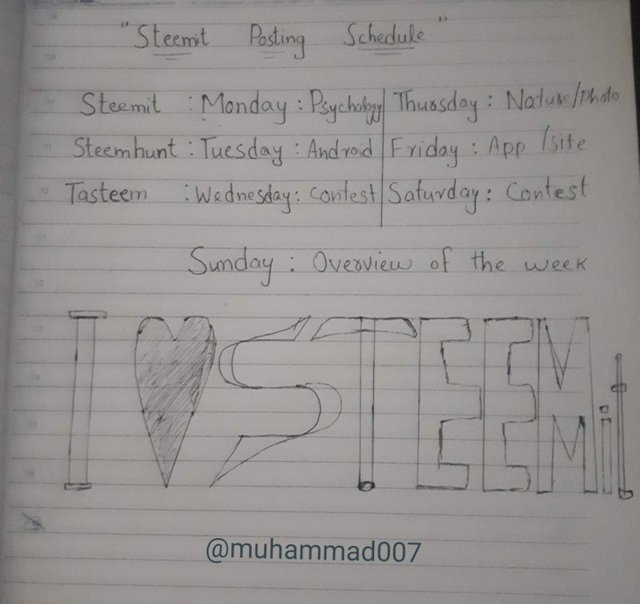 "Steemit Posting Schedule"
Steemit : Monday : Psychology | Thursday : Nature/Photo
Steemhunt : Tuesday : Android | Friday : App /site
Tasteem : Wednesday : Contest | Saturday : Contest
Sunday : Overview of the week
I ♥ STEEMit
@muhammad007